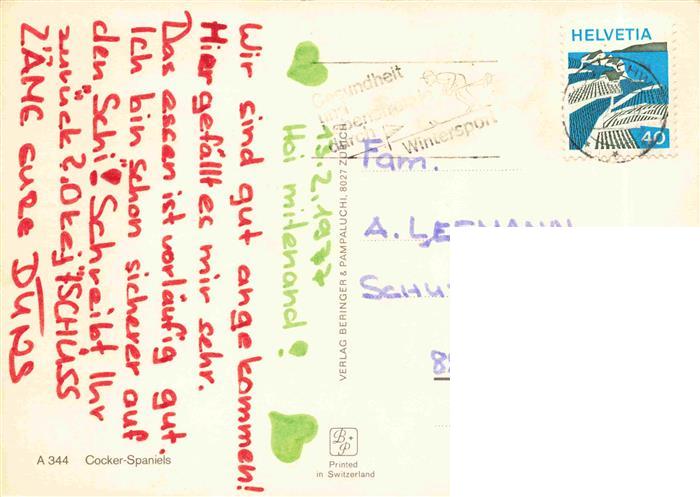 15.2.1977
Hoi mitenand!
Wir sind gut angekommen!
Hier gefällt es mir sehr.
Das essen ist vorläufig gut.
Ich bin schön sicherer auf
den Schi! Schreibt Ihr
zurück?. Okej TSCHÜSS
ZÄME eure
HELVETIA
40
Gesundheit
und
durch
Wintersport
Fam.
A. LEEMANN
VERLAG BERINGER & PAMPALUCHI, 8027 ZÜRICH
A 344 Cocker-Spaniels
B+P
Printed
in Switzerland